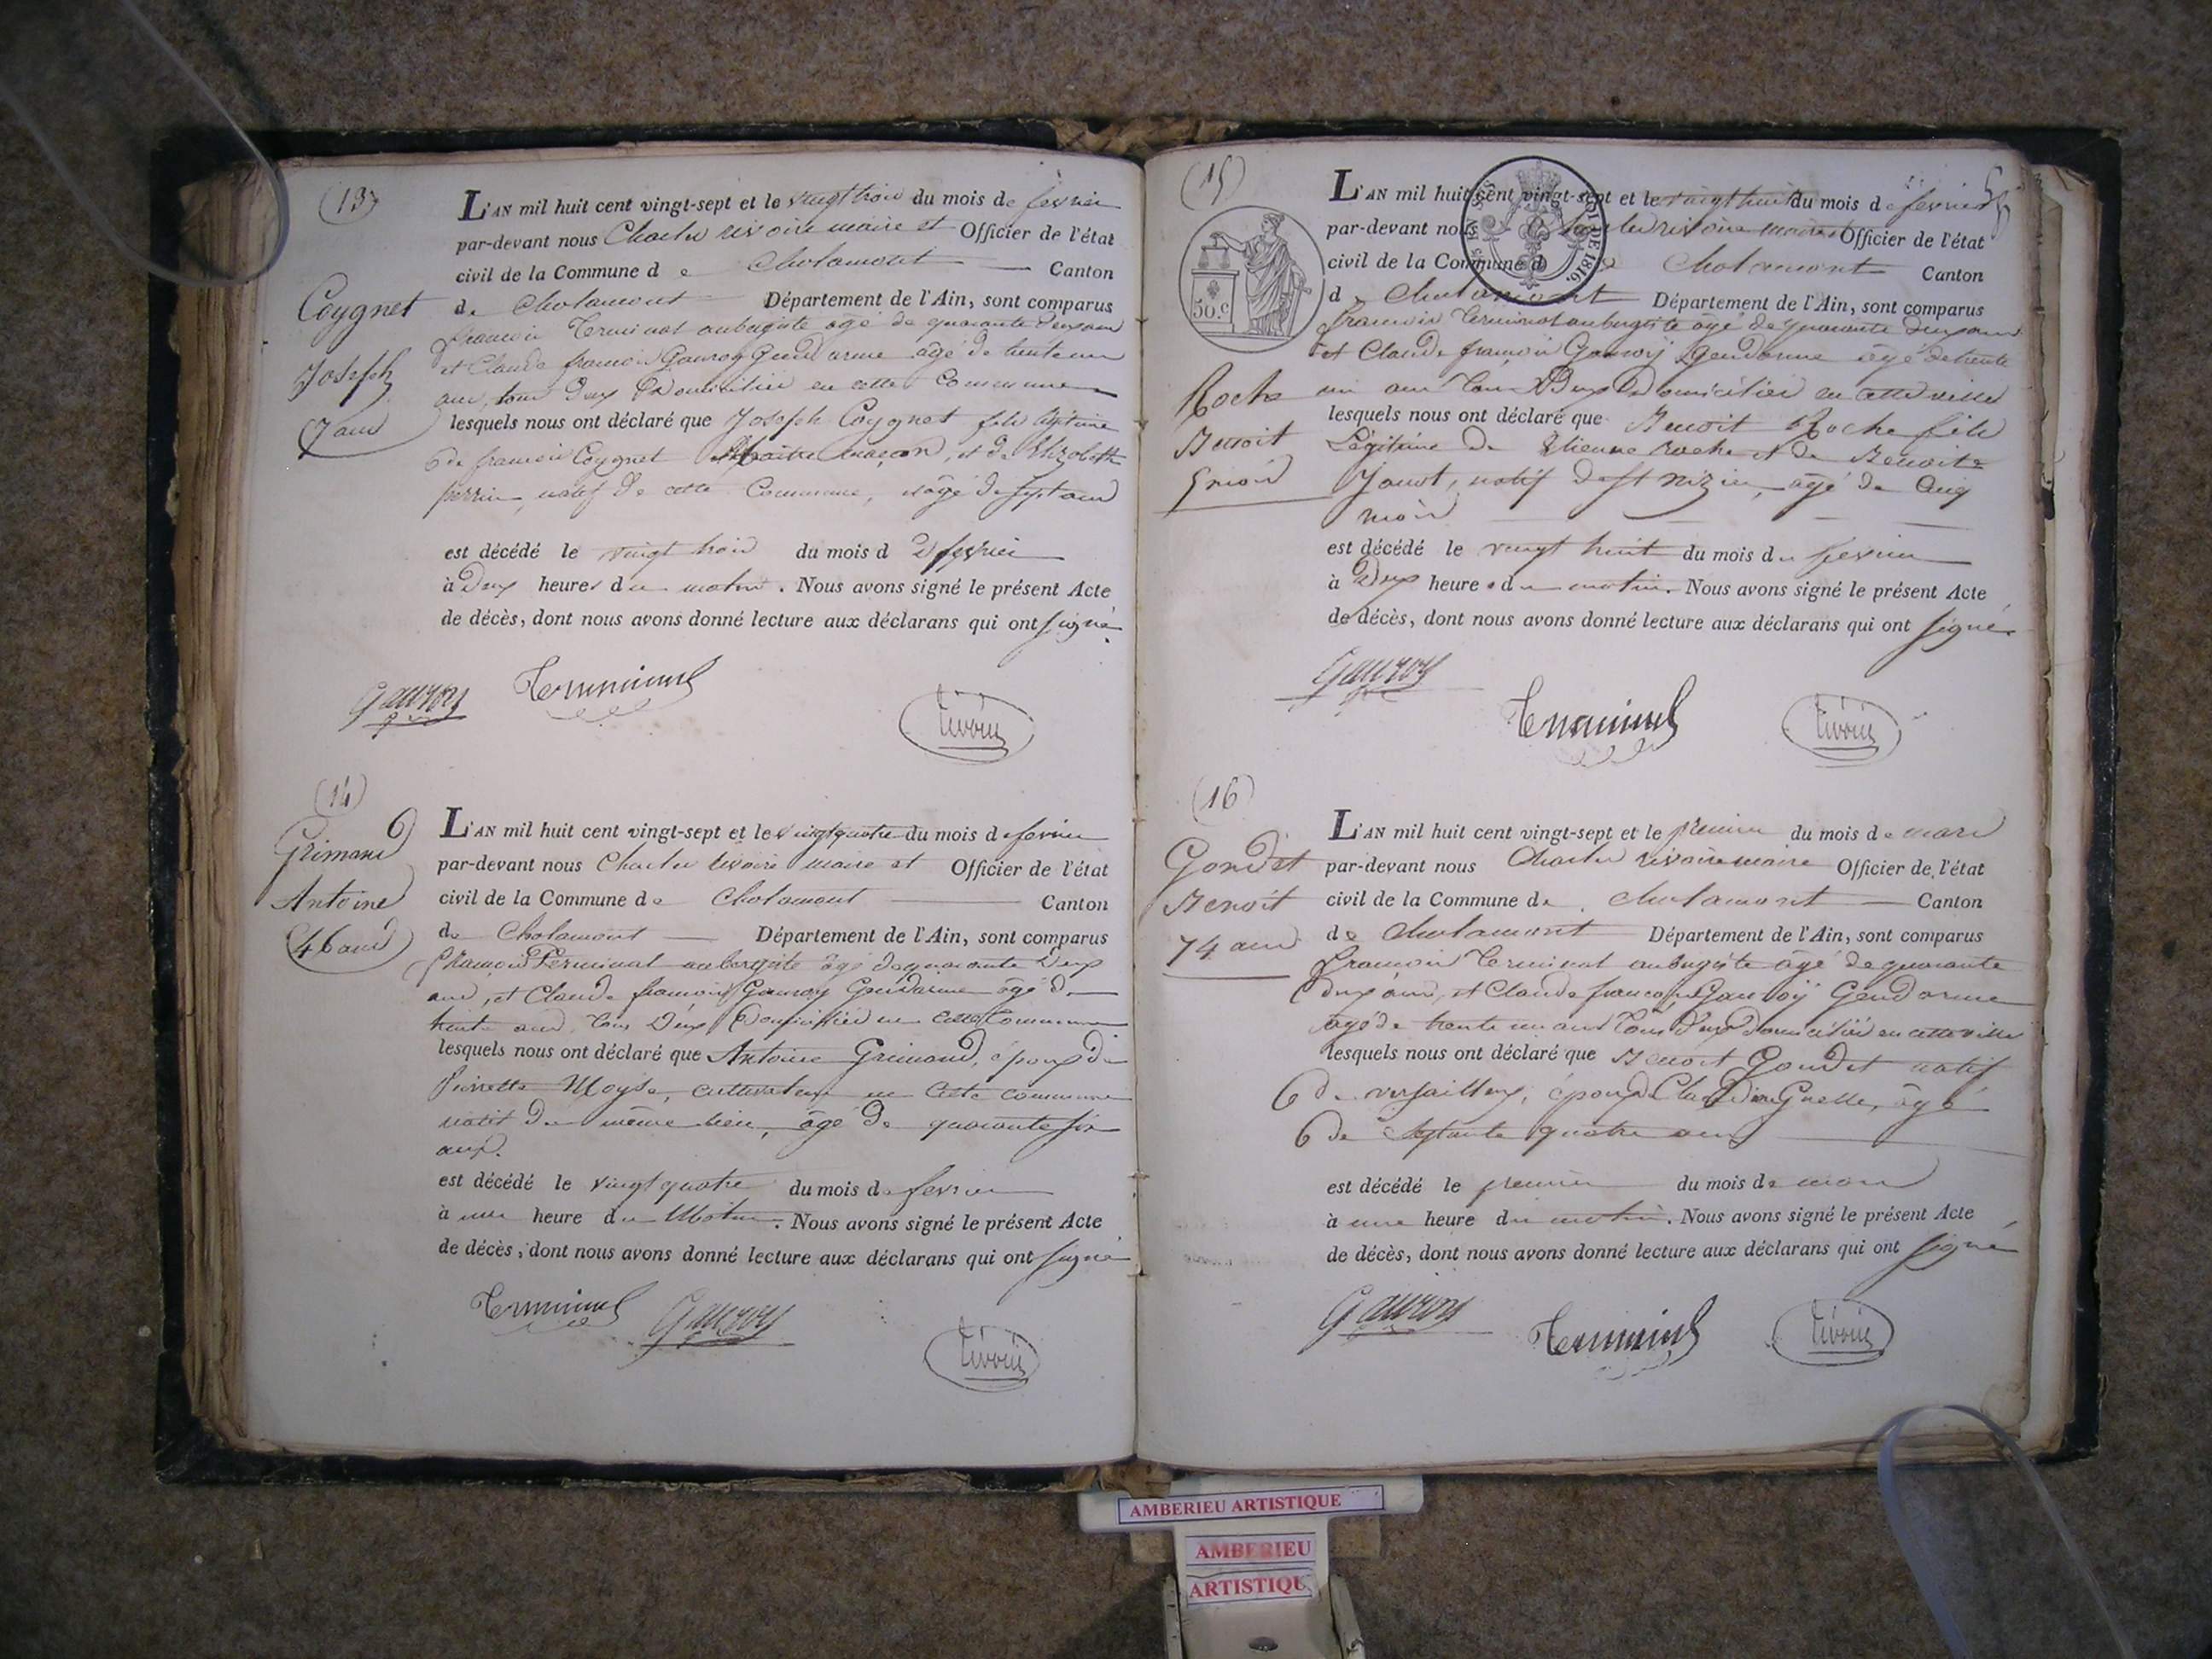 (13)
Coygnet
Joseph
7 ans
L'AN mil huit cent vingt-sept et le vingt trois du mois de fevrier
par-devant nous Charles rivoire maire et Officier de l'état
civil de la Commune de Chalamont Canton
de Chalamont Département de l'Ain, sont comparus
francois Terminal aubergiste âgé de quarante deux ans
et Claude francois Gauroy Gendarme âgé de trente un
ans, tous deux Domiciliés en cette Commune
lesquels nous ont déclaré que Joseph Coygnet fils légitime
de francois Coygnet Maitre maçon, et de Elizabeth
perrin, natif de cette Commune, âgé de sept ans
est décédé le vingt trois du mois de fevrier
à Deux heures du matin. Nous avons signé le présent Acte
de décès, dont nous avons donné lecture aux déclarans qui ont signé.
Gauroy Terminal rivoire
(14)
Grimand
Antoine
46 ans
L'AN mil huit cent vingt-sept et le vingt quatre du mois de fevrier
par-devant nous Charles rivoire maire et Officier de l'état
civil de la Commune de Chalamont Canton
de Chalamont Département de l'Ain, sont comparus
francois Terminal aubergiste âgé de quarante Deux
ans, et Claude francois Gauroy Gendarme âgé de
trente ans tous Deux Domiciliés en cette Commune
lesquels nous ont déclaré que Antoine Grimand, époux de
Pierrette Moyse, cultivateur en cette commune
natif du même lieu, âgé de quarante six
ans.
est décédé le vingt quatre du mois de fevrier
à une heure du Matin. Nous avons signé le présent Acte
de décès, dont nous avons donné lecture aux déclarans qui ont signé
Terminal Gauroy rivoire
(15)
50.c
DE 1816.
Roche
Benoit
5 mois
L'AN mil huit cent vingt-sept et le vingt huit du mois de fevrier
par-devant nous Charles rivoire maire et Officier de l'état
civil de la Commune de Chalamont Canton
de Chalamont Département de l'Ain, sont comparus
francois Terminal aubergiste âgé de quarante deux ans
et Claude françois Gauroÿ gendarme âgé de trente
un ans tous Deux Domiciliés en cette ville
lesquels nous ont déclaré que Benoit Roche fils
Légitime de Etienne roche et de Benoite
Janot, natif de St nizier, âgé de Cinq
mois
est décédé le vingt huit du mois de fevrier
à Deux heures du matin. Nous avons signé le présent Acte
de décès, dont nous avons donné lecture aux déclarans qui ont signé.
Gauroy Terminal rivoire
(16)
Gondet
Benoit
74 ans
L'AN mil huit cent vingt-sept et le premier du mois de mars
par-devant nous Charles rivoire maire Officier de l'état
civil de la Commune de Chalamont Canton
de Chalamont Département de l'Ain, sont comparus
francois Terminal aubergiste âgé de quarante
deux ans, et Claude francois Gauroÿ Gendarme
âgé de trente un ans tous Deux Domiciliés en cette ville
lesquels nous ont déclaré que Benoit Gondet natif
de versailleux, époux de Claudine Grelle, âgé
de septante quatre ans
est décédé le premier du mois de mars
à une heure du matin. Nous avons signé le présent Acte
de décès, dont nous avons donné lecture aux déclarans qui ont signé
Gauroy Terminal rivoire
AMBERIEU ARTISTIQUE
AMBERIEU
ARTISTIQU